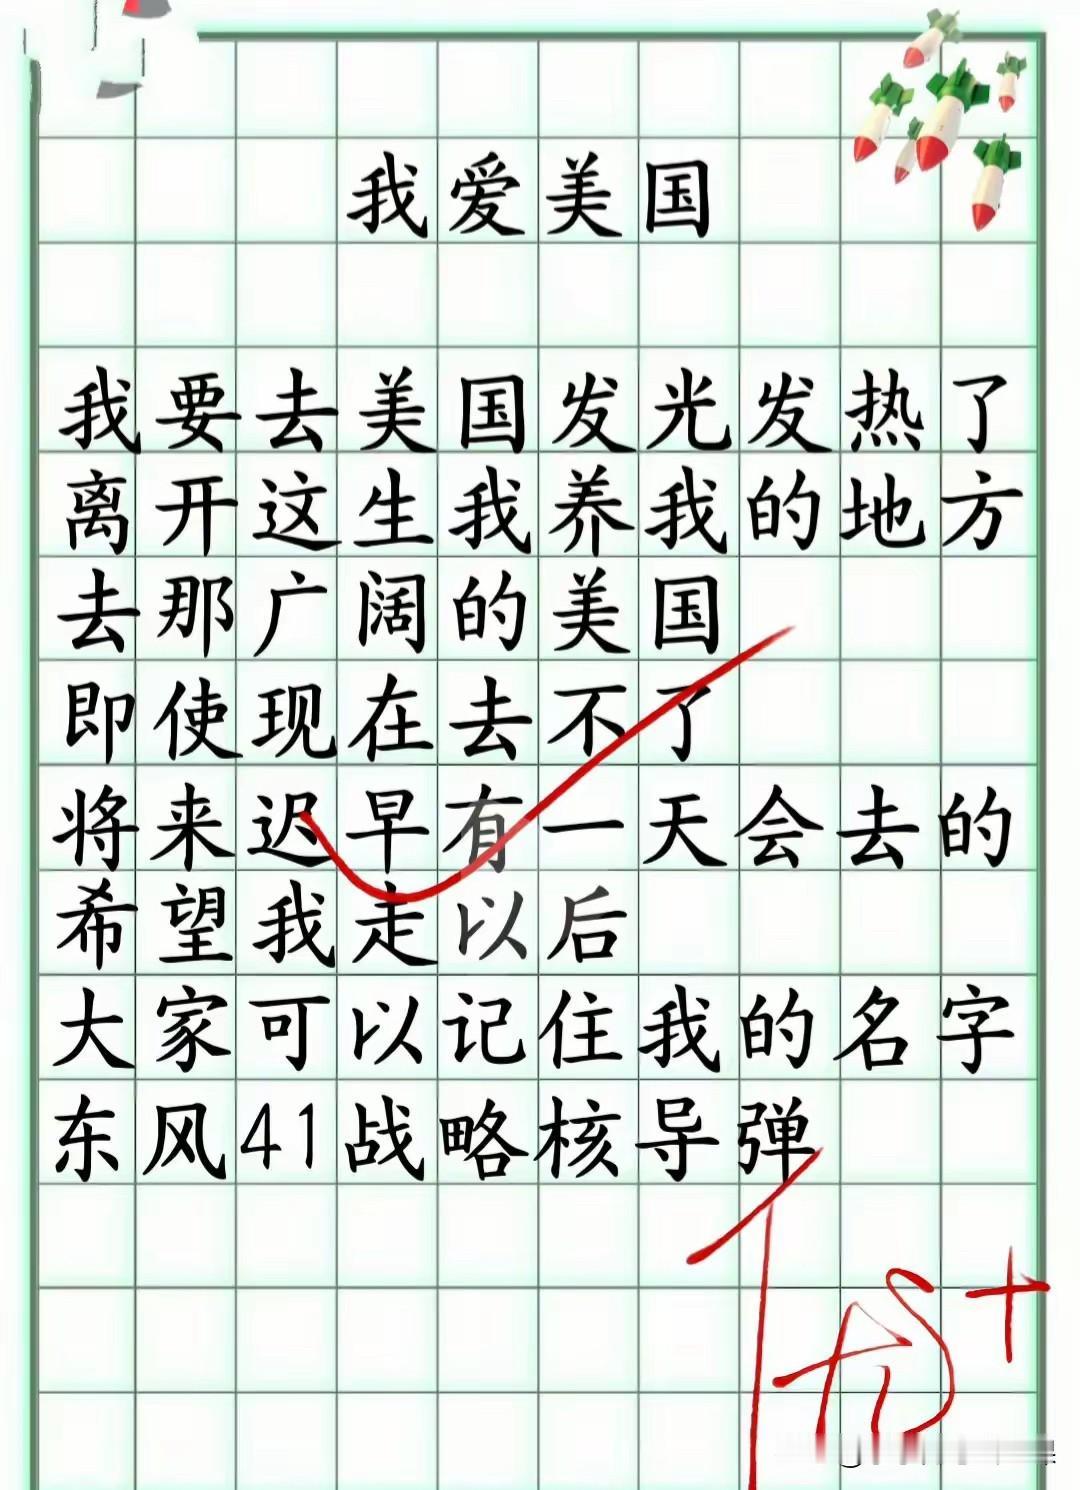 我爱美国
我要去美国发光发热了
离开这生我养我的地方
去那广阔的美国
即使现在去不了
将来迟早有一天会去的
希望我走以后
大家可以记住我的名字
东风41战略核导弹